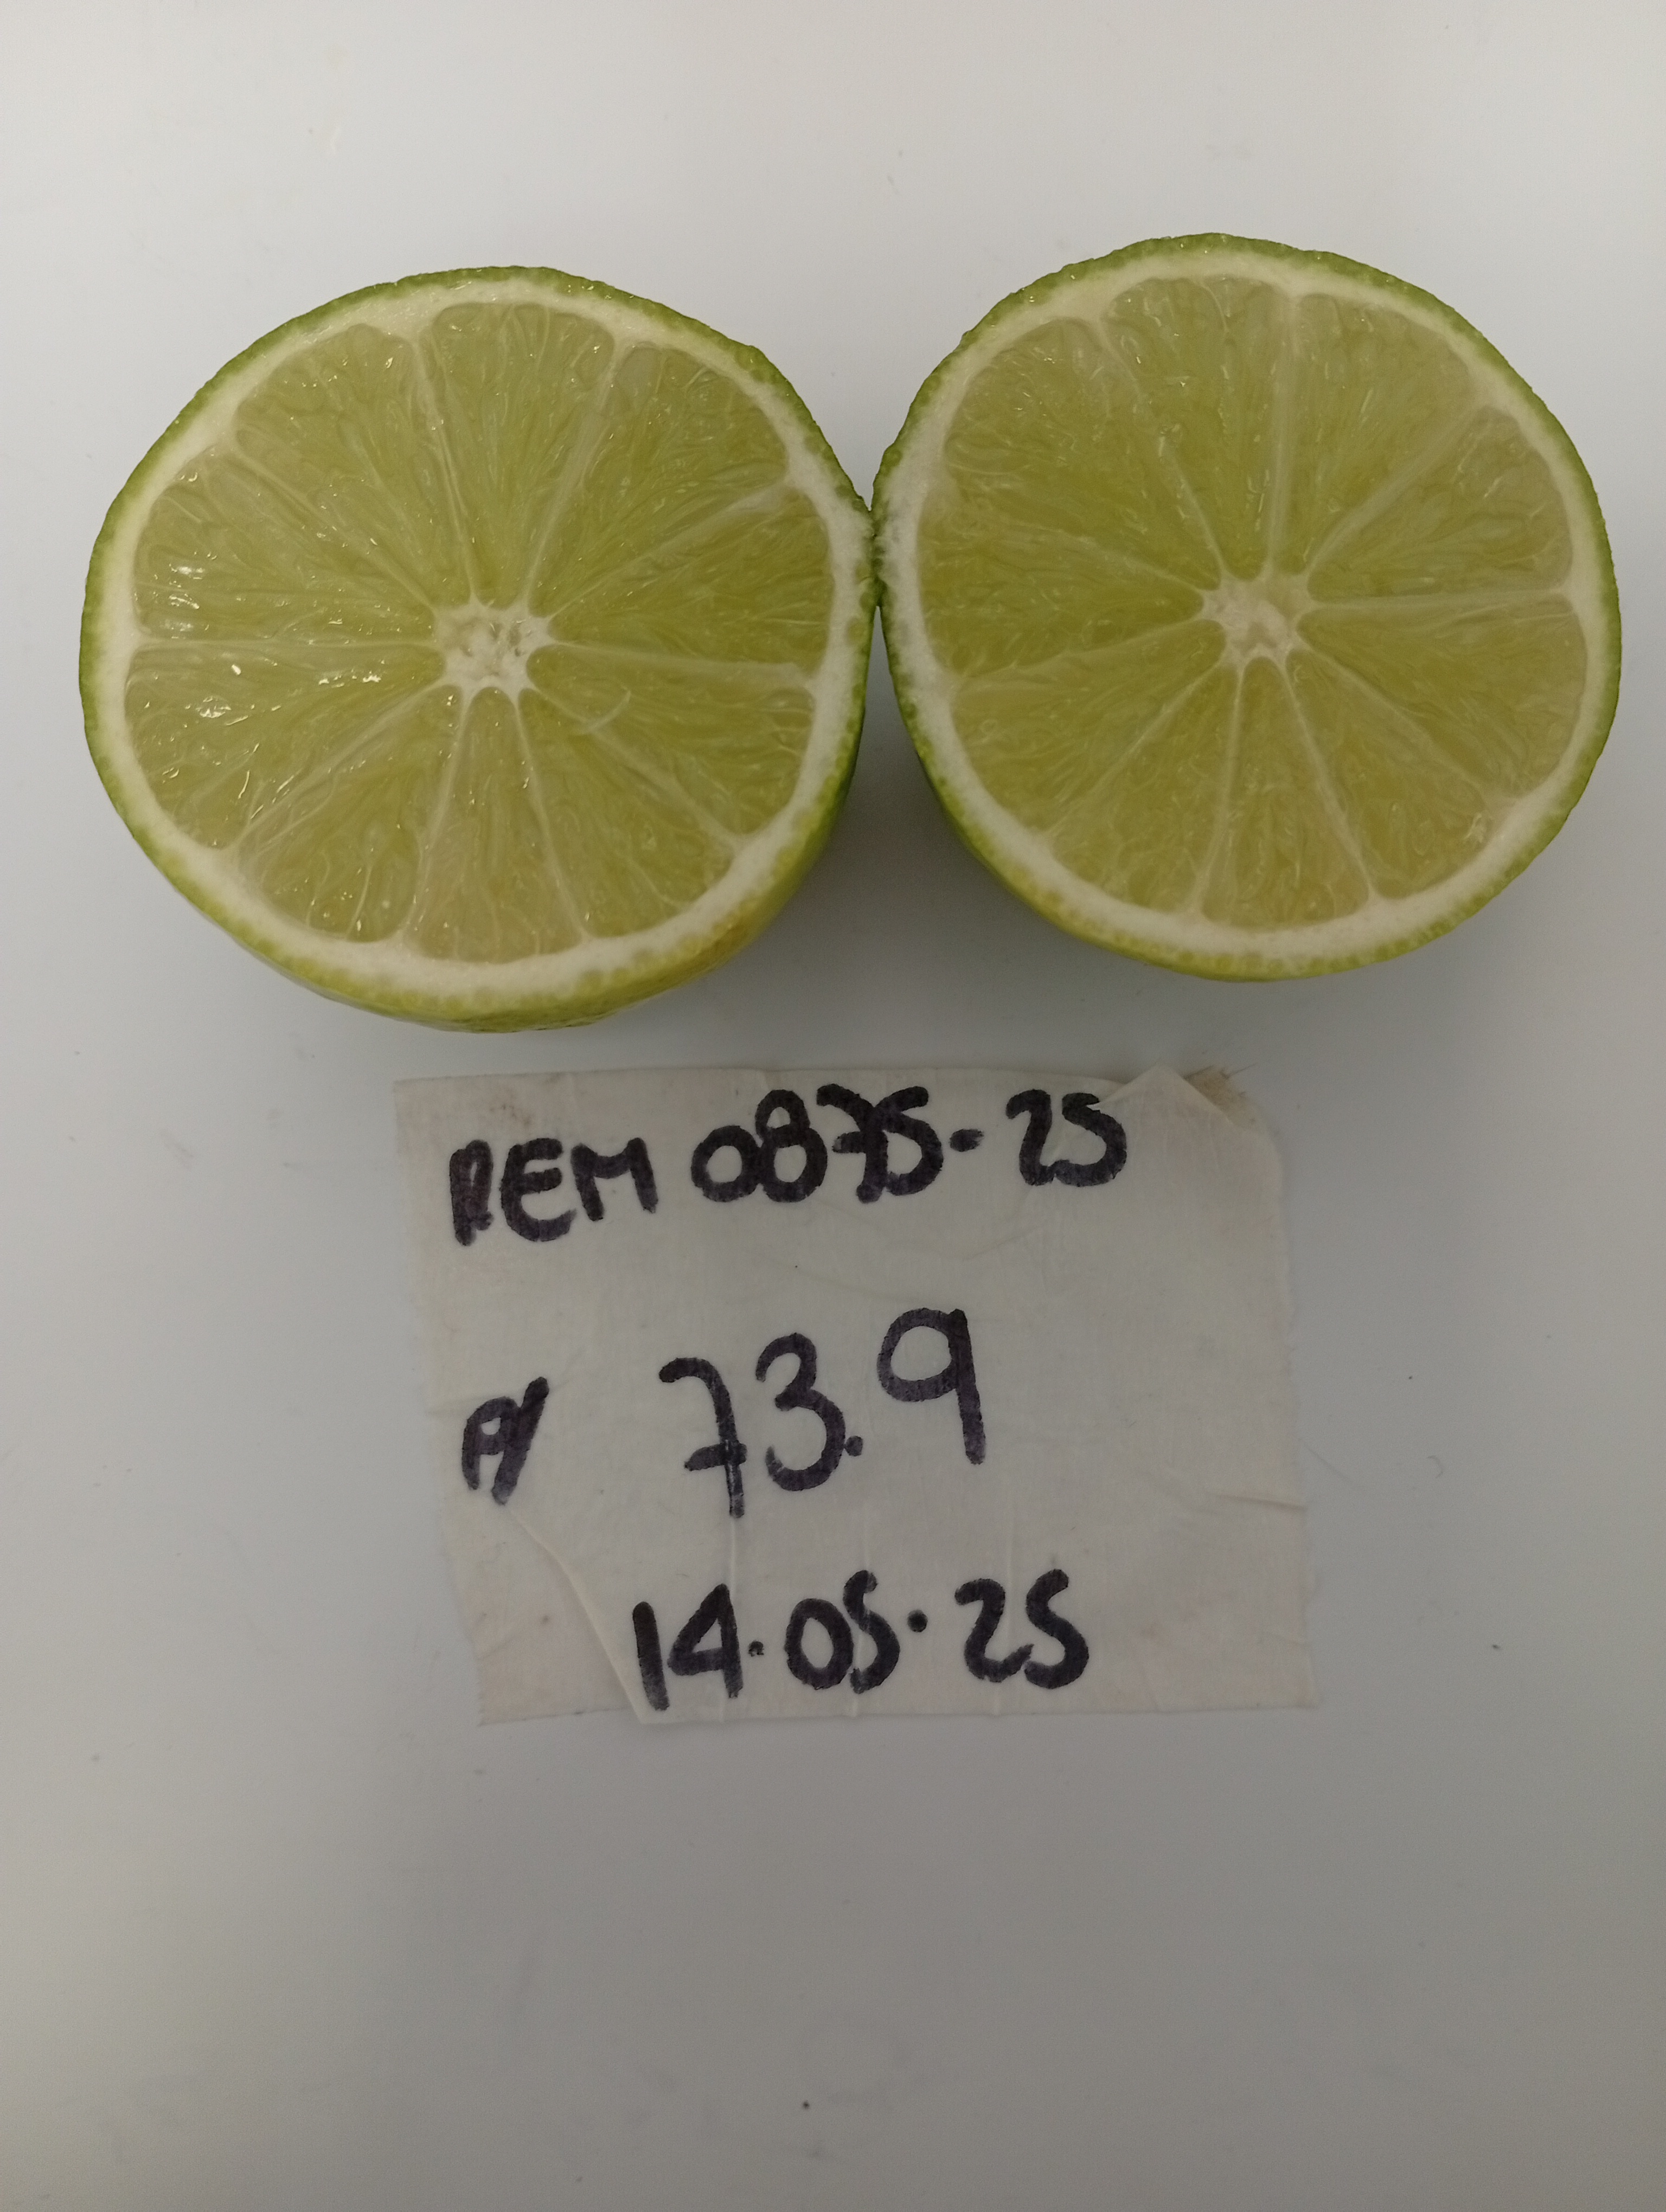 REM 0875-25
A/ 73.9
14.05.25